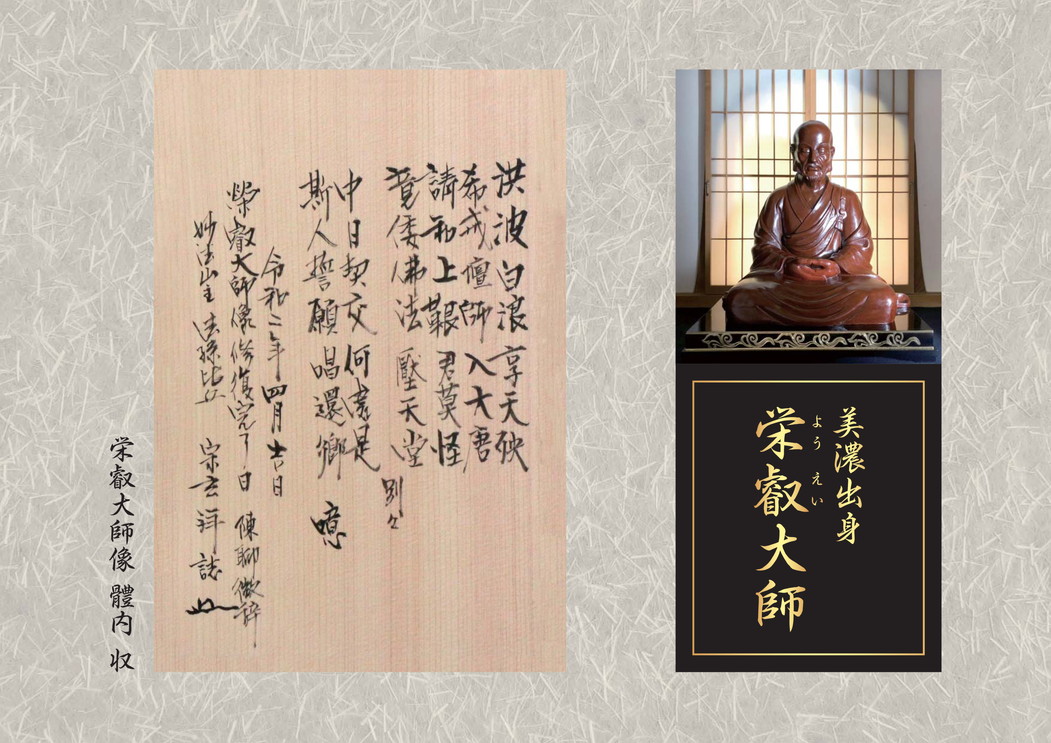 美濃出身
ようえい
栄叡大師
洪波白浪 享天
希戒壇師 入大唐
請和上艱 君莫怪
倭佛法 壓天堂
別々
中日契交 何是
斯人誓願 唱還鄉 噫
令和二年四月吉日
榮叡大師像修復完了日 陳聊微辞
妙法山主 法孫比丘 宗玄 拝誌
栄叡大師像 體内 収